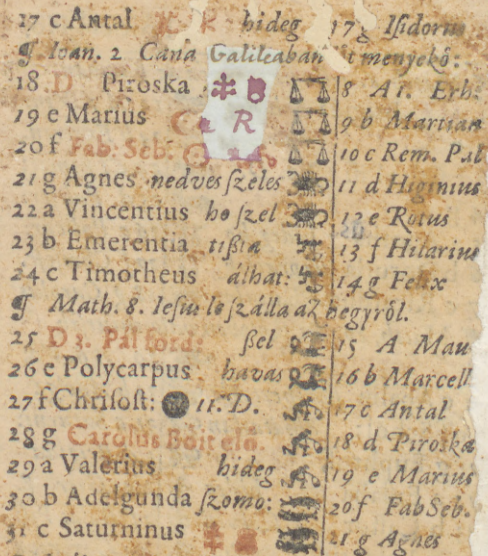 17 c Antal hideg 17 g Isidorus
¶ Ioan. 2 Cana Galileaban menyekô:
18 D Piroska 8 A 1. Erh:
19 e Marius R 9 b Martian
20 f Fab: Seb: 10 c Rem. Pal
21 g Agnes nedves ſzeles 11 d Higinius
22 a Vincentius ho ſzel 12 e Rotus
23 b Emerentia tißta 13 f Hilarius
24 c Timotheus álhat: 14 g Felix
¶ Math. 8. Ieſus le ſzálla az hegyrôl.
25 D 3. Pál ford: ßel 15 A Mau
26 e Polycarpus havas 16 b Marcell
27 f Chriſoſt: 11. D. 17 c Antal
28 g Carolus Böit elô. 18 d Piroska
29 a Valerius hideg 19 e Marius
30 b Adelgunda ſzomo: 20 f Fab Seb.
31 c Saturninus 21 g Agnes